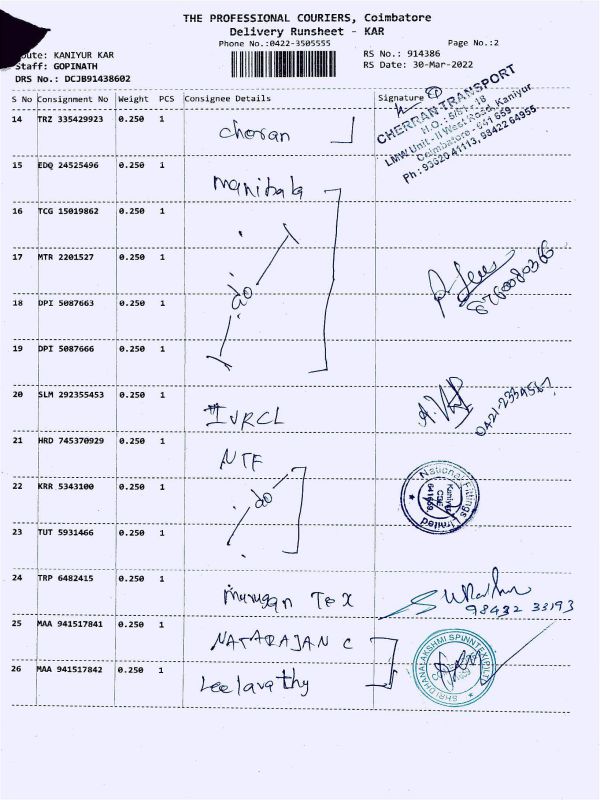 THE PROFESSIONAL COURIERS, Coimbatore
Delivery Runsheet - KAR
Phone No.:0422-3505555 Page No.:2
oute: KANIYUR KAR RS No.: 914386
Staff: GOPINATH RS Date: 30-Mar-2022
DRS No.: DCJB91438602
S No Consignment No Weight PCS Consignee Details Signature
14 TRZ 335429923 0.250 1 Cheran
CHERRAN TRANSPORT
H.O. : 5/81 - 18
LMW Unit - II West Road, Kaniyur
Coimbatore - 641 659
Ph : 93620 41113, 98422 64955
15 EDQ 24525496 0.250 1 Manibala
16 TCG 15019862 0.250 1
17 MTR 2201527 0.250 1
18 DPI 5087663 0.250 1 do
19 DPI 5087666 0.250 1
20 SLM 292355453 0.250 1 IVRCL
21 HRD 745370929 0.250 1 NTF
22 KRR 5343100 0.250 1 do
National Fittings Limited
Kaniyur
CBE
641659
23 TUT 5931466 0.250 1
24 TRP 6482415 0.250 1 Murugan Tex
98432 33193
25 MAA 941517841 0.250 1 NATARAJAN C
26 MAA 941517842 0.250 1 Leelavathy
SHRI DHANALAKSHMI SPINNTEX (P) LTD